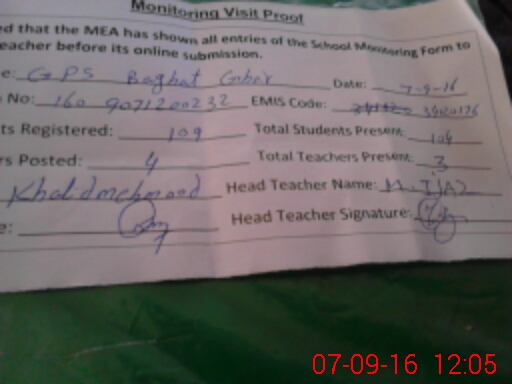 Monitoring Visit Proof
ed that the MEA has shown all entries of the School Monitoring Form to
eacher before its online submission.
e: GPS Baghat Date: 7-9-16
No: 160 9071200232 EMIS Code: 34120176
ts Registered: 109 Total Students Present: 104
rs Posted: 4 Total Teachers Present: 3
Khalidmehmood Head Teacher Name: M. IJAZ
e: Head Teacher Signature:
07-09-16 12:05